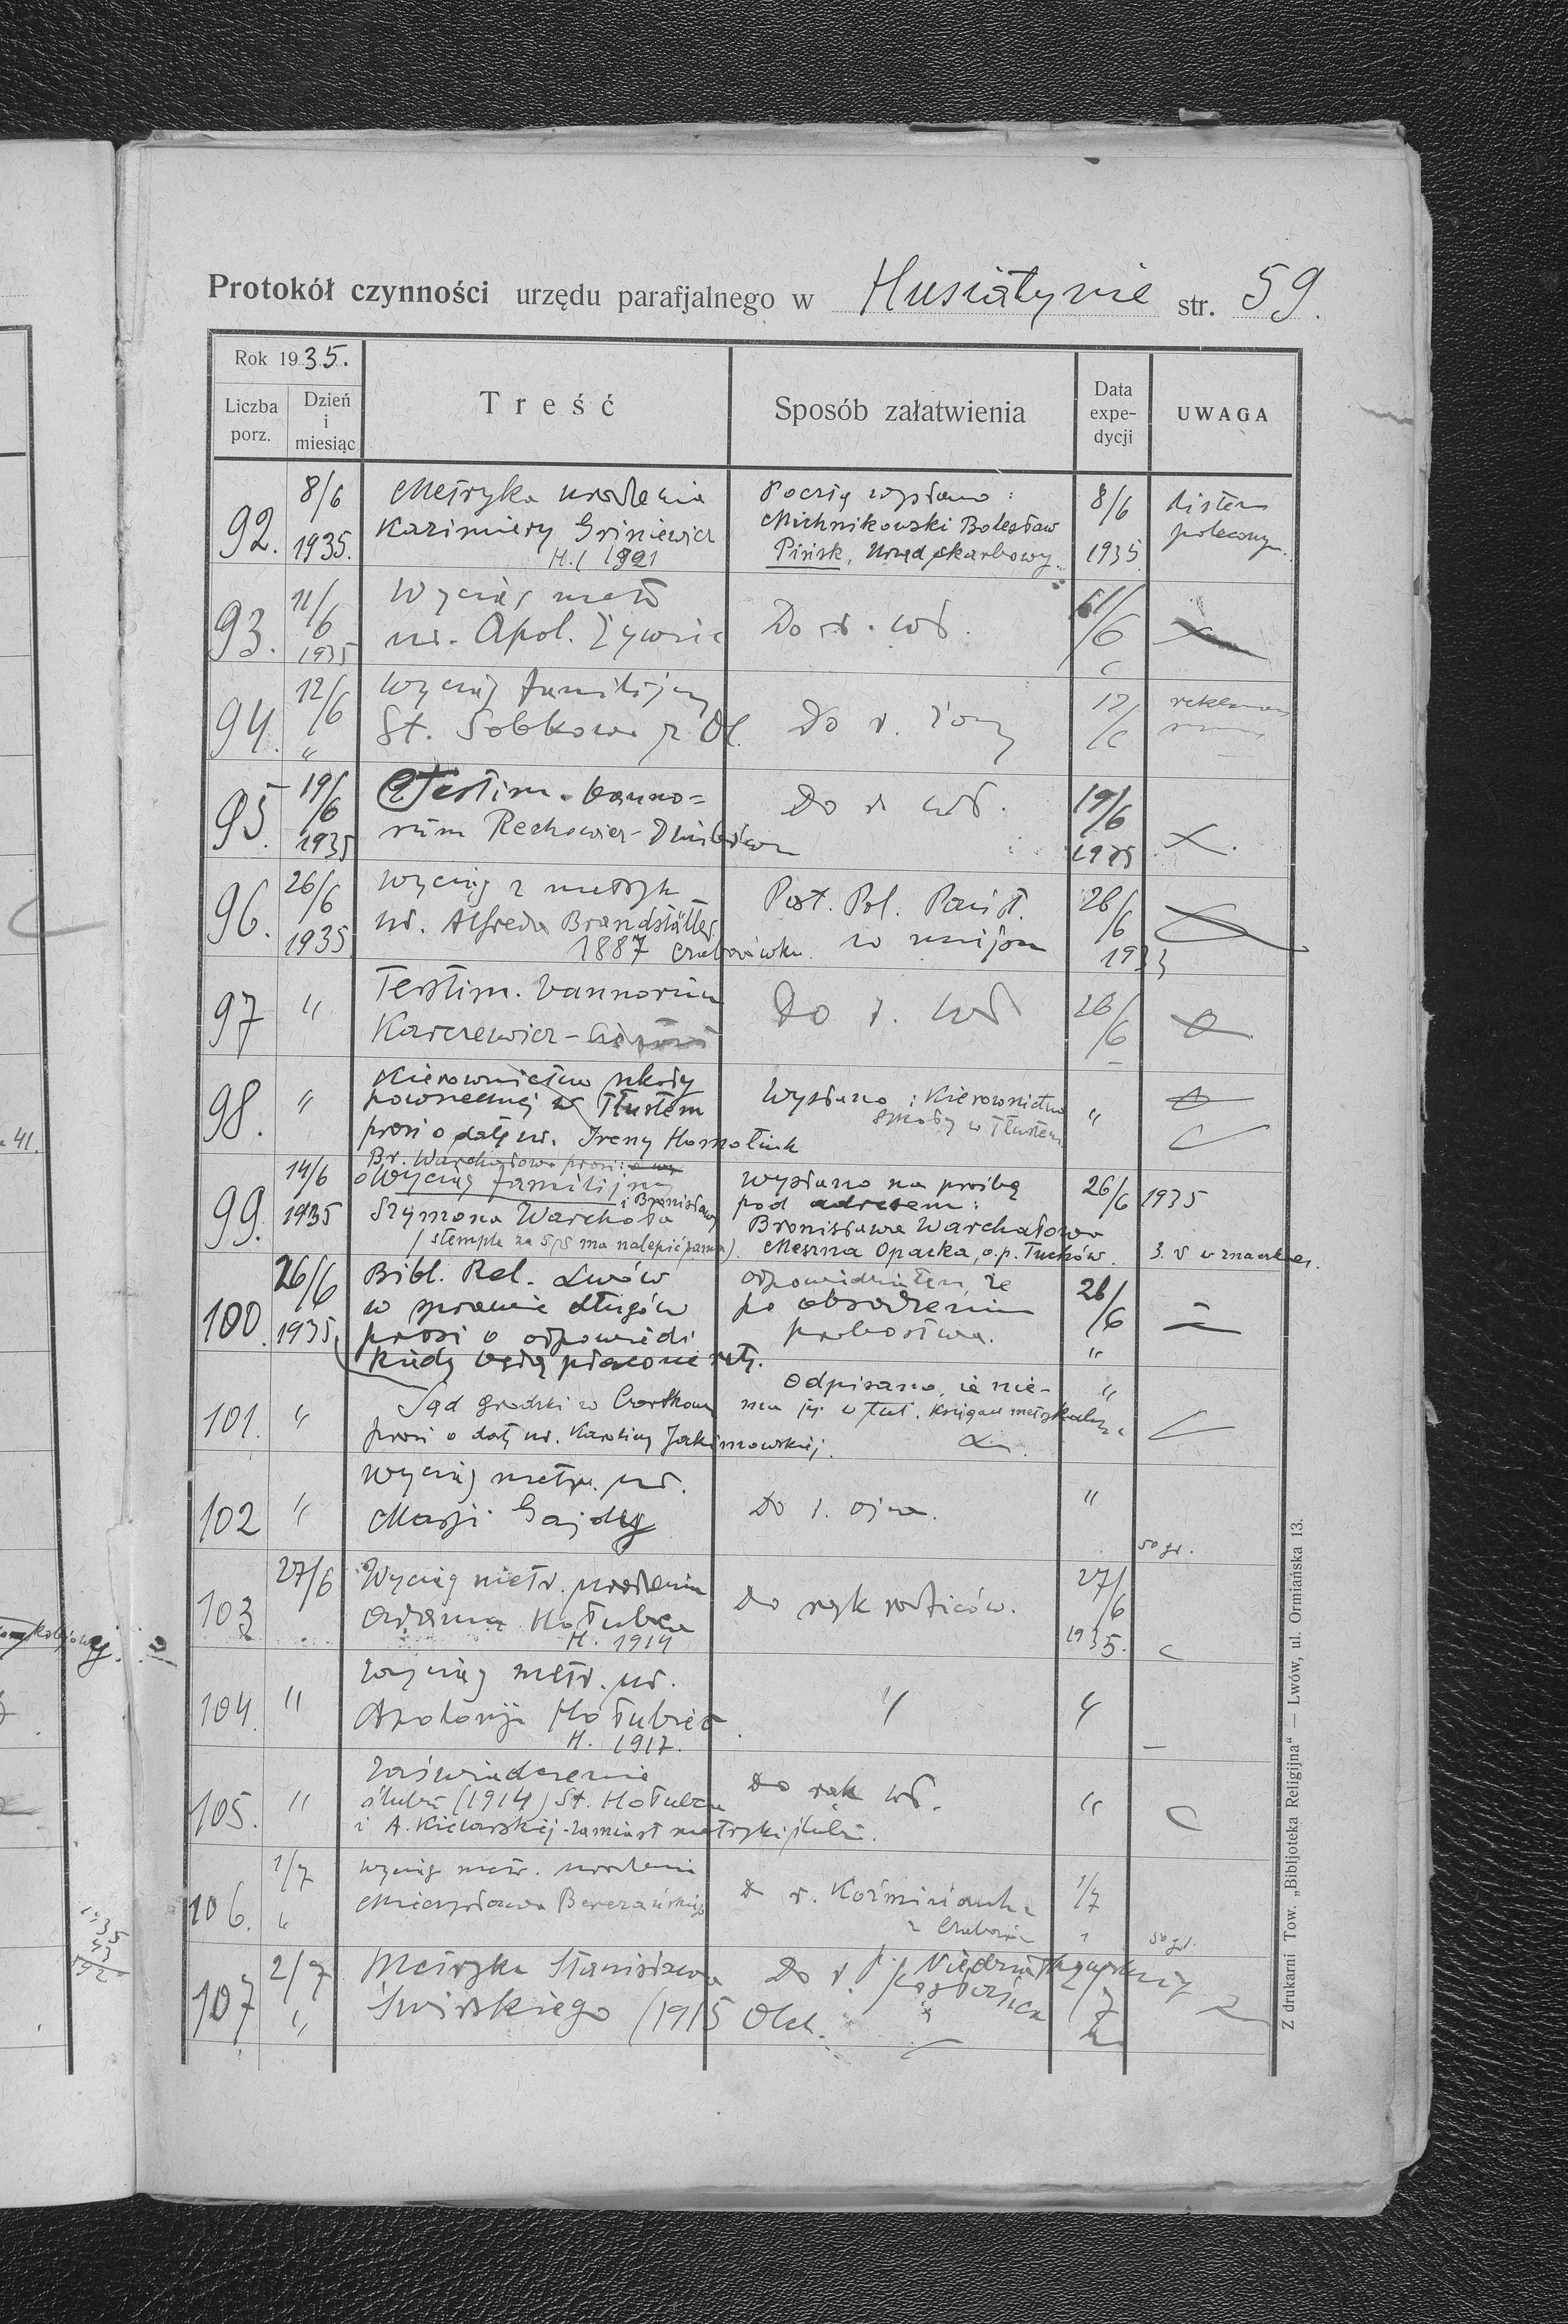 Protokół czynności urzędu parafjalnego w Husiatynie str. 59.
Rok 1935.
Liczba porz.
Dzień i miesiąc
Treść
Sposób załatwienia
Data expedycji
UWAGA
92.
8/6
1935.
Metryka urodzenia
Kazimiery Griniewicz
H. 1921
Pocztą wysłano:
Michnikowski Bolesław
Pińsk, Urząd skarbowy.
8/6
1935
Listem
poleconym.
93.
11/6
1935
Wyciąg metr
ur. Apol. Żywric
Do r. wł.
11/6
94.
12/6
"
Wyciąg familijny
St. Sobkowa z Ol.
Do r. żony
12/6
95.
19/6
1935
Testim. banno=
rum Rechowicz-
Do r. wł.
19/6
1935
96.
26/6
1935
Wyciąg z metryk
ur. Alfreda Brandstätter
1887 Czabarówka
Post. Pol. Państ.
w miejscu
26/6
1933
97
"
Testim. bannorum
Karczewicz-
Do r. wł
26/6
98.
"
Kierownictwo szkoły
powszechnej w Tłustem
prosi o datę ur. Ireny Homoluk
Wysłano: Kierownictwo
szkoły w Tłustem
"
99.
14/6
1935
Br. Warchałowa prosi:
o Wyciąg familijny
i Bronisławy
Szymona Warchoła
(stemple za 5 zł ma nalepić sama).
Wysłano na prośbę
pod adresem:
Bronisława Warchałowa
Meszna Opacka, o.p. Tuchów.
26/6 1935
3. zł w znaczkach.
100.
26/6
1935
Bibl. Rel. Lwów
w sprawie długów
prosi o odpowiedź
kiedy będą płacone raty.
odpowiedziałem, że
po obsadzeniu
probostwa.
26/6
"
101.
"
Sąd grodzki w Czortkowie
prosi o datę ur. Karoliny Jakimowskiej.
Odpisano, że nie-
ma jej w tut. księgach metrykalnych
"
102
"
Wyciąg metr. ur.
Marji Gajdy
Do r. ojca.
"
50 gr.
103
27/6
Wyciąg metr. urodzenia
Adama Hołubca
H. 1914
Do rąk rodziców.
27/6
1935.
104.
"
Wyciąg metr. ur.
Apolonji Hołubiec
H. 1917.
"
"
105.
"
Zaświadczenie
ślubu (1914) St. Hołubca
i A. Kielarskiej - zamiast metryki ślubu.
Do rąk wł.
"
106.
1/7
"
Wyciąg metr. urodzenia
Mieczysława Berezańskiego
Do r. Koźminiarka
1/7
"
50 gr.
107
2/7
"
Metryka Stanisława
Świrskiego (1915 Olch.
Do r. p.
Z drukarni Tow. „Bibljoteka Religijna“ — Lwów, ul. Ormiańska 13.